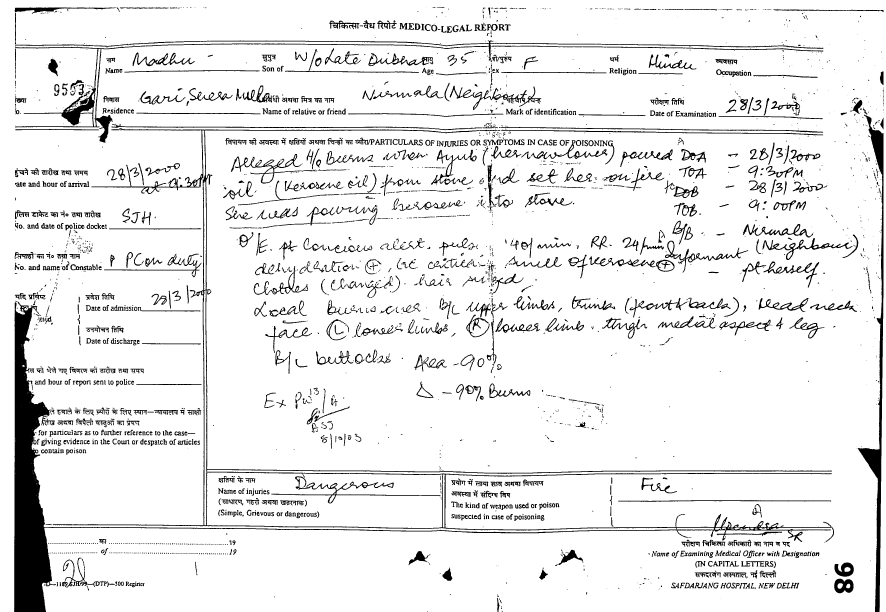 चिकित्सा-वैध रिपोर्ट MEDICO-LEGAL REPORT
नाम Name Madhu सुपुत्र Son of W/o Late आयु Age 35 स्त्री/पुरुष Sex F धर्म Religion Hindu व्यवसाय Occupation
9593
निवास Residence Gari, संबंधी अथवा मित्र का नाम Name of relative or friend Nirmala (Neighbour) Mark of identification परीक्षण तिथि Date of Examination 28/3/2000
विषपान की अवस्था में क्षतियों अथवा चिन्हों का ब्यौरा/PARTICULARS OF INJURIES OR SYMPTOMS IN CASE OF POISONING
पहुंचने की तारीख तथा समय
Date and hour of arrival 28/3/2000 at 9:30PM
Alleged H/o Burns when Ayub (her new lover) poured
oil (Kerosene oil) from stove and set her on fire.
She was pouring kerosene into stove.
DOA - 28/3/2000
TOA - 9:30PM
DOB - 28/3/2000
TOB - 9:00PM
B/B - Nirmala (Neighbour)
Informant - pt herself.
पुलिस डाकेट का नं० तथा तारीख
No. and date of police docket SJH
O/E. pt Concious alert. pulse 140/min, RR. 24/min
dehydration + , GC critical smell of kerosene +
Clothes (changed). hair singed
सिपाही का नं० तथा नाम
No. and name of Constable PC on duty
यदि प्रविष्ट
प्रवेश तिथि
Date of admission 28/3/2000
उनमोचन तिथि
Date of discharge
Local burns over B/L upper limbs, trunk (front & back), Head neck
face. (L) lower limbs, (R) lower limb. thigh medial aspect & leg.
B/L buttocks. Area - 90%
Δ - 90% Burns
को भेजे गए विवरण की तारीख तथा समय
and hour of report sent to police
Ex PW 13/A
ASJ
8/10/03
for particulars as to further reference to the case—
of giving evidence in the Court or despatch of articles
to contain poison
क्षतियों के नाम
Name of injuries Dangerous
(साधारण, गहरी अथवा खतरनाक)
(Simple, Grievous or dangerous)
प्रयोग में लाया शस्त्र अथवा विषपान
अवस्था में संदिग्ध विष
The kind of weapon used or poison
suspected in case of poisoning
Fire
का 19
of 19
Upendra SR
परीक्षण चिकित्सा अधिकारी का नाम व पद
Name of Examining Medical Officer with Designation
(IN CAPITAL LETTERS)
सफदरजंग अस्पताल, नई दिल्ली
SAFDARJANG HOSPITAL, NEW DELHI
(DTP)—500 Register
98